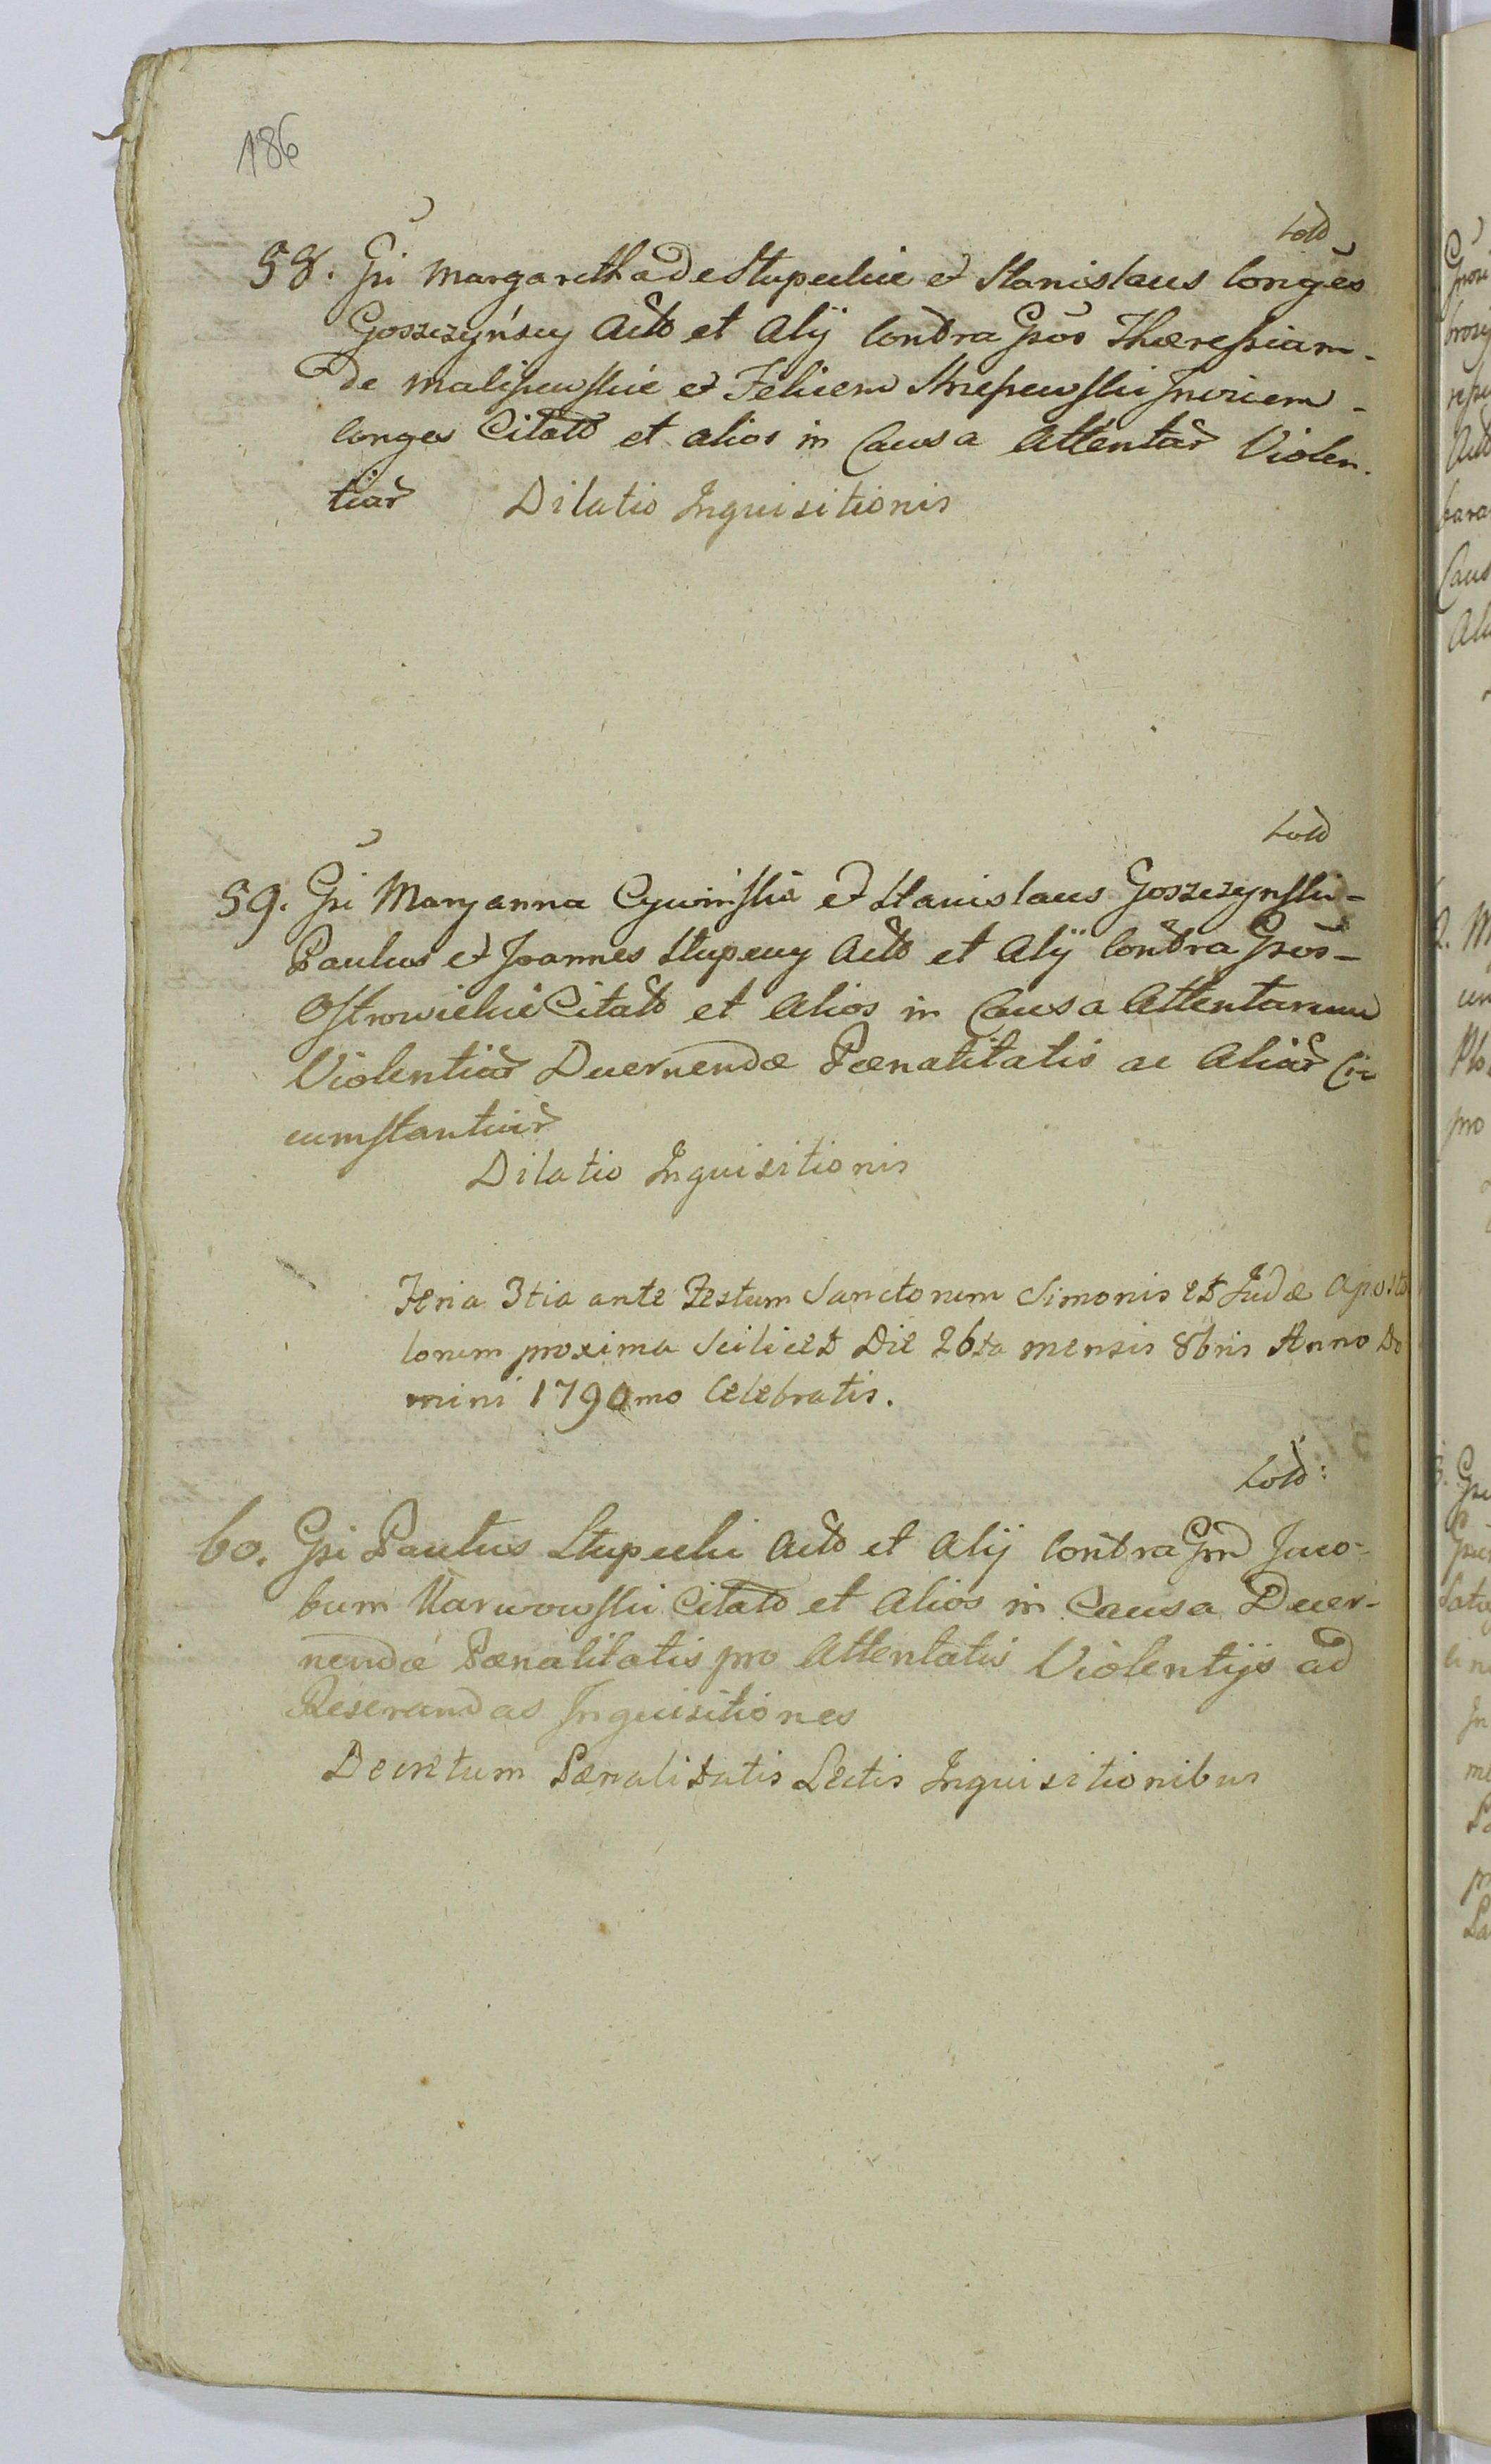 186
Lold
58. Gsi Margaretha de Stupeckie et Stanislaus Conges
Goszczyńscy Acto et Alij Contra Gsos Theressiam
de Malisewskie et Felicem Invicem
Conges Citato et alios in Causa Attentar Violen-
tiar Dilatio Inquisitionis
Lold
59. Gsi Maryanna Cywińska et Stanislaus Goszczynski
Paulus et Joannes Stupeccy Acto et Alij Contra Gsos
Ostrowickie Citato et Alios in Causa Attentarum
Violentiar Decernendæ Pœnalitatis ac Aliar Cir
cumstantiar
Dilatio Inquisitionis
Feria 3tia ante Festum Sanctorum Simonis et Judæ Aposto
lorum proxima Scilicet Die 26ta mensis 8bris Anno Do
mini 1790mo Celebratis.
Lold:
60. Gsi Paulus Stupecki Acto et Alij Contra Gsm Jaco-
bum Karwowski Citato et Alios in Causa Decer-
nendæ Pœnalitatis pro Attentatis Violentijs ad
Reserandas Inquisitiones
Decretum Pœnalitatis Lectis Inquisitionibus